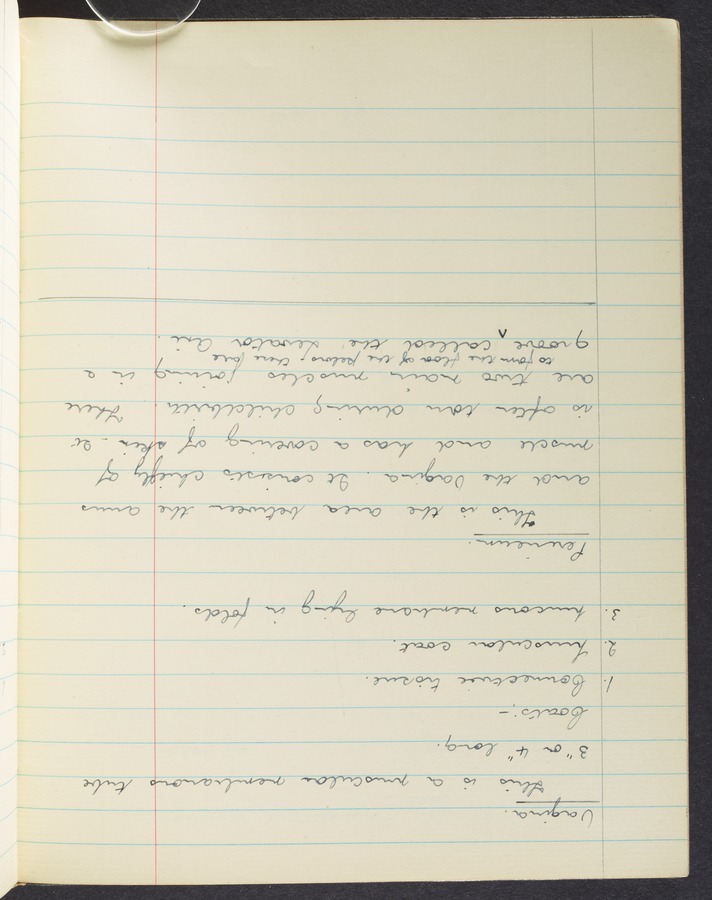 Vagina.
This is a muscular membranous tube
3" or 4" long.
Coats:-
1. Connective tissue.
2. Muscular coat.
3. Mucous membrane lying in folds.
Perineum.
This is the area between the anus
and the Vagina. It consists chiefly of
muscle and has a covering of skin. It
is often torn during childbirth. There
are two main muscles joining in a
to form the floor of the pelvis, there are
groove called the Levator Ani.